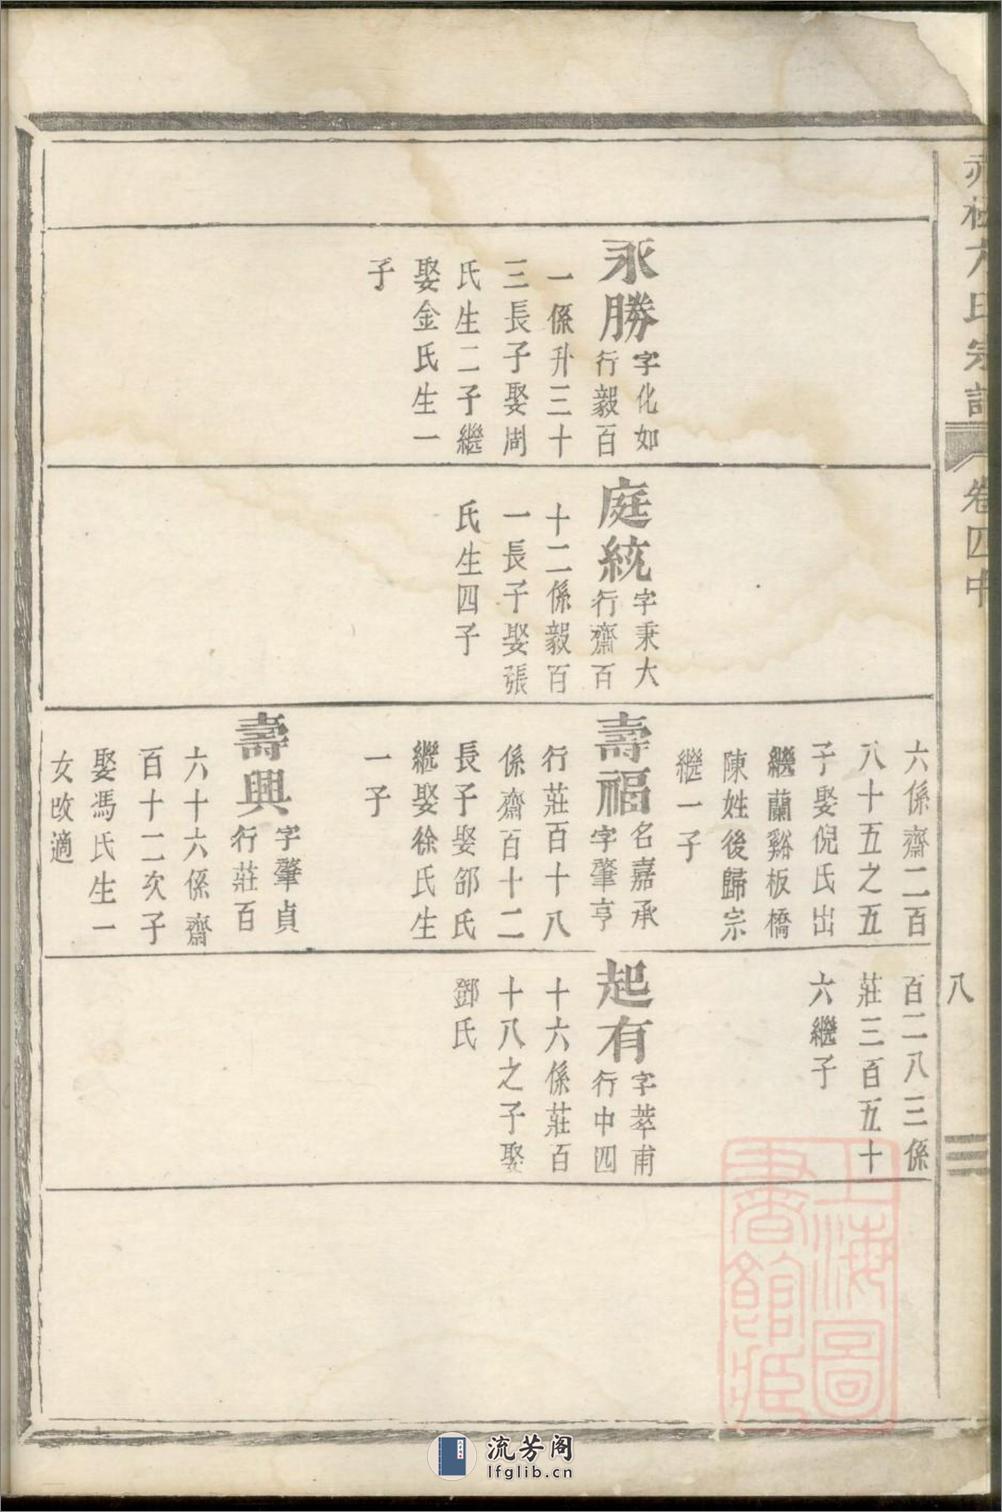 方氏宗譜
卷四中
八
永勝
字化如
行毅百
一係升三十
三長子娶周
氏生二子繼
娶金氏生一
子
庭統
字秉大
行齋百
十二係毅百
一長子娶張
氏生四子
六係齋二百
八十五之五
子娶倪氏出
繼蘭谿板橋
陳姓後歸宗
繼一子
壽福
名嘉承
字肇亨
行莊百十八
係齋百十二
長子娶邵氏
繼娶徐氏生
一子
壽興
字肇貞
行莊百
六十六係齋
百十二次子
娶馮氏生一
女改適
百二八三係
莊三百五十
六繼子
起有
字萃甫
行中四
十六係莊百
十八之子娶
鄧氏
上海圖
書館藏
流芳阁
lfglib.cn